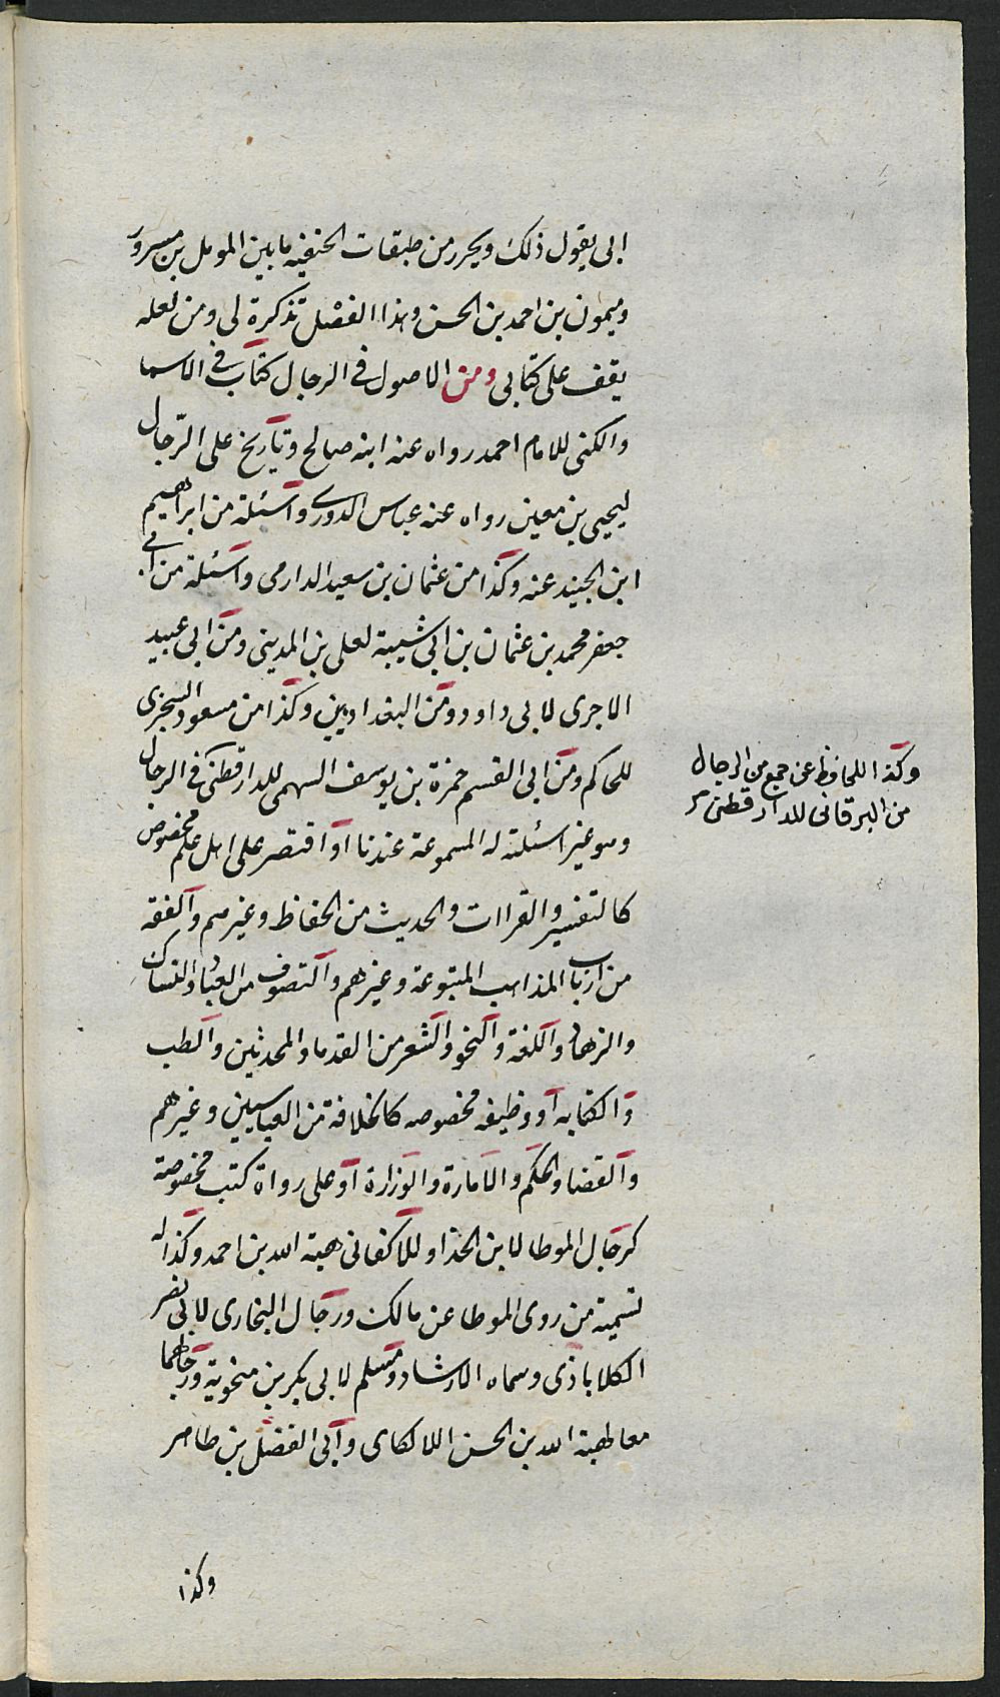 ابى يقول ذلك ويحرر من طبقات الحنفيه ما بين المومل بن مسرور
وميمون بن احمد بن الحسن وهذا الفصل تذكرة لى ومن لعله
يقف على كتابى ومن الاصول فى الرجال كتاب فى الاسما
والكنى للامام احمد رواه عنه ابنه صالح وتاريخ على الرّجال
ليحيى بن معين رواه عنه عباس الدورى واسئلة من ابراهيم
ابن الجنيد عنه وكذا من عثمان بن سعيد الدارمى واسئلة من ابى
جعفر محمد بن عثمان بن ابى شيبة لعلى بن المدينى ومن ابى عبيد
الاجرى لابى داود ومن البغداديين وكذا من مسعود السجزى
للحاكم ومن ابى القسم حمزة بن يوسف السهمى للدارقطنى فى الرجال
وكذا للحافظ عن جمع من الرجال
من البرقانى للدارقطنى
وهو غير اسئلته له المسموعة عندنا او اقتصر على اهل علم مخصوص
كالتفسير والقراات والحديث من الحفاظ وغيرهم والفقه
من ارباب المذاهب المتبوعة وغيرهم والتصوف من العباد والنساك
والزهاد واللغة والنحو والشعر من القدما والمحدثين والطب
والكتابه او وظيفه مخصوصه كالخلافة من العباسيين وغيرهم
والقضا والحكم والامارة والوزارة او على رواة كتب مخصوصة
كرجال الموطا لابن الحذا وللاكفانى هبة الله بن احمد وكذا له
تسمية من روى الموطا عن مالك ورجال البخارى لابى نصر
الكلاباذى وسماه الارشاد ومسلم لابى بكر بن منجوية ورجالهما
معا لهبة الله بن الحسن اللالكاى وابى الفضل بن طاهر
وكذا